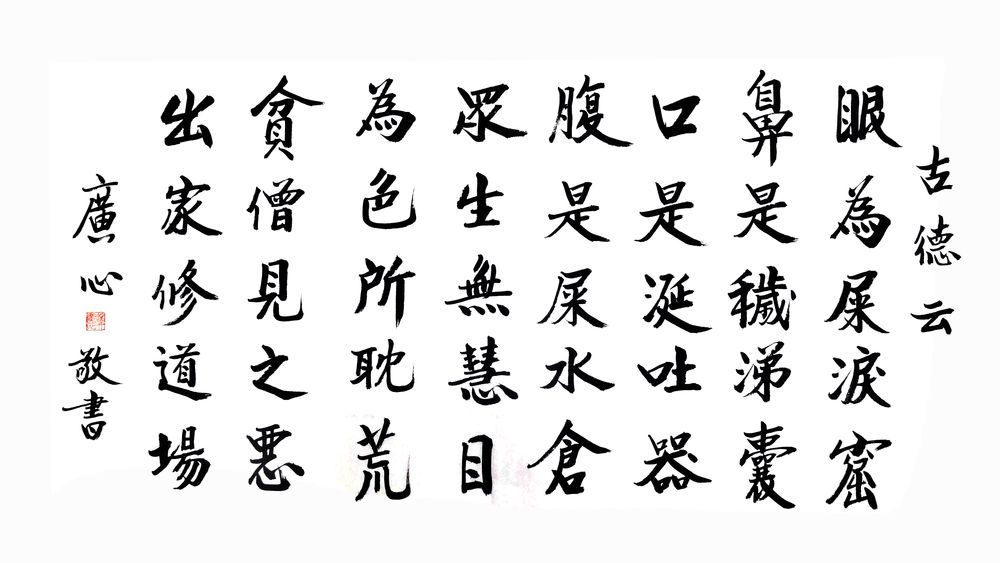 古德云
眼為屎淚窟
鼻是穢涕囊
口是涎吐器
腹是屎水倉
眾生無慧目
為色所耽荒
貧僧見之惡
出家修道場
廣心 敬書